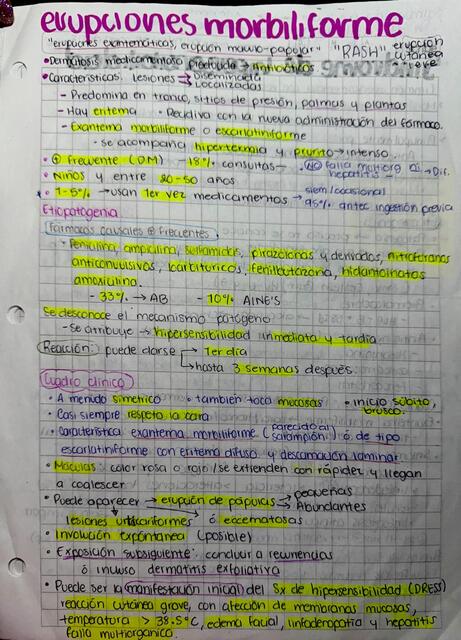 erupciones morbiliforme
"erupciones exantemáticas, erupción maculo-papular" "RASH" erupción cutánea leve
• Dermatosis medicamentosa producida → Antibióticos
• Características: lesiones → Diseminada
Localizadas
- Predomina en tronco, sitios de presión, palmas y plantas
- Hay eritema - Recidiva con la nueva administración del fármaco.
- Exantema morbiliforme o escarlatiniforme
- se acompaña hipertermia y prurito → intenso
• ⊕ frecuente (DM) - 18% consultas - NO falla multiorg ni hepatitis → Dif.
• Niños y entre 20-50 años
• 1-5% → usan 1er vez medicamentos → siem/ocasional
95% antec ingestión previa
Etiopatogenia
Fármacos causales ⊕ frecuentes
- Penicilina, ampicilina, sulfamidas, pirazolonas y derivados, nitrofuranos
anticonvulsivos, barbitúricos, fenilbutazona, hidantoinatos
amoxicilina.
- 33% → AB - 10% AINE'S
Se desconoce el mecanismo patógeno
- Se atribuye → hipersensibilidad inmediata y tardía
Reacción: puede darse → 1er día
→ hasta 3 semanas después.
Cuadro clínico
• A menudo simétrico • también toca mucosas • inicio súbito, brusco.
• Casi siempre respeta la cara
• Característica exantema morbiliforme (parecido al sarampión) ó de tipo
escarlatiniforme con eritema difuso y descamación laminar
• Máculas: color rosa o rojo / se extienden con rápidez y llegan
a coalescer
• Puede aparecer → erupción de pápulas → pequeñas
→ Abundantes
lesiones urticariformes ó eccematosas
• Involución expontánea (posible)
• Exposición subsiguiente: conducir a recurrencias
ó incluso dermatitis exfoliativa
• Puede ser la manifestación inicial del Sx de hipersensibilidad (DRESS)
reacción cutánea grave, con afección de membranas mucosas,
temperatura > 38.5°C, edema facial, linfadenopatía y hepatitis
falla multiorgánica.